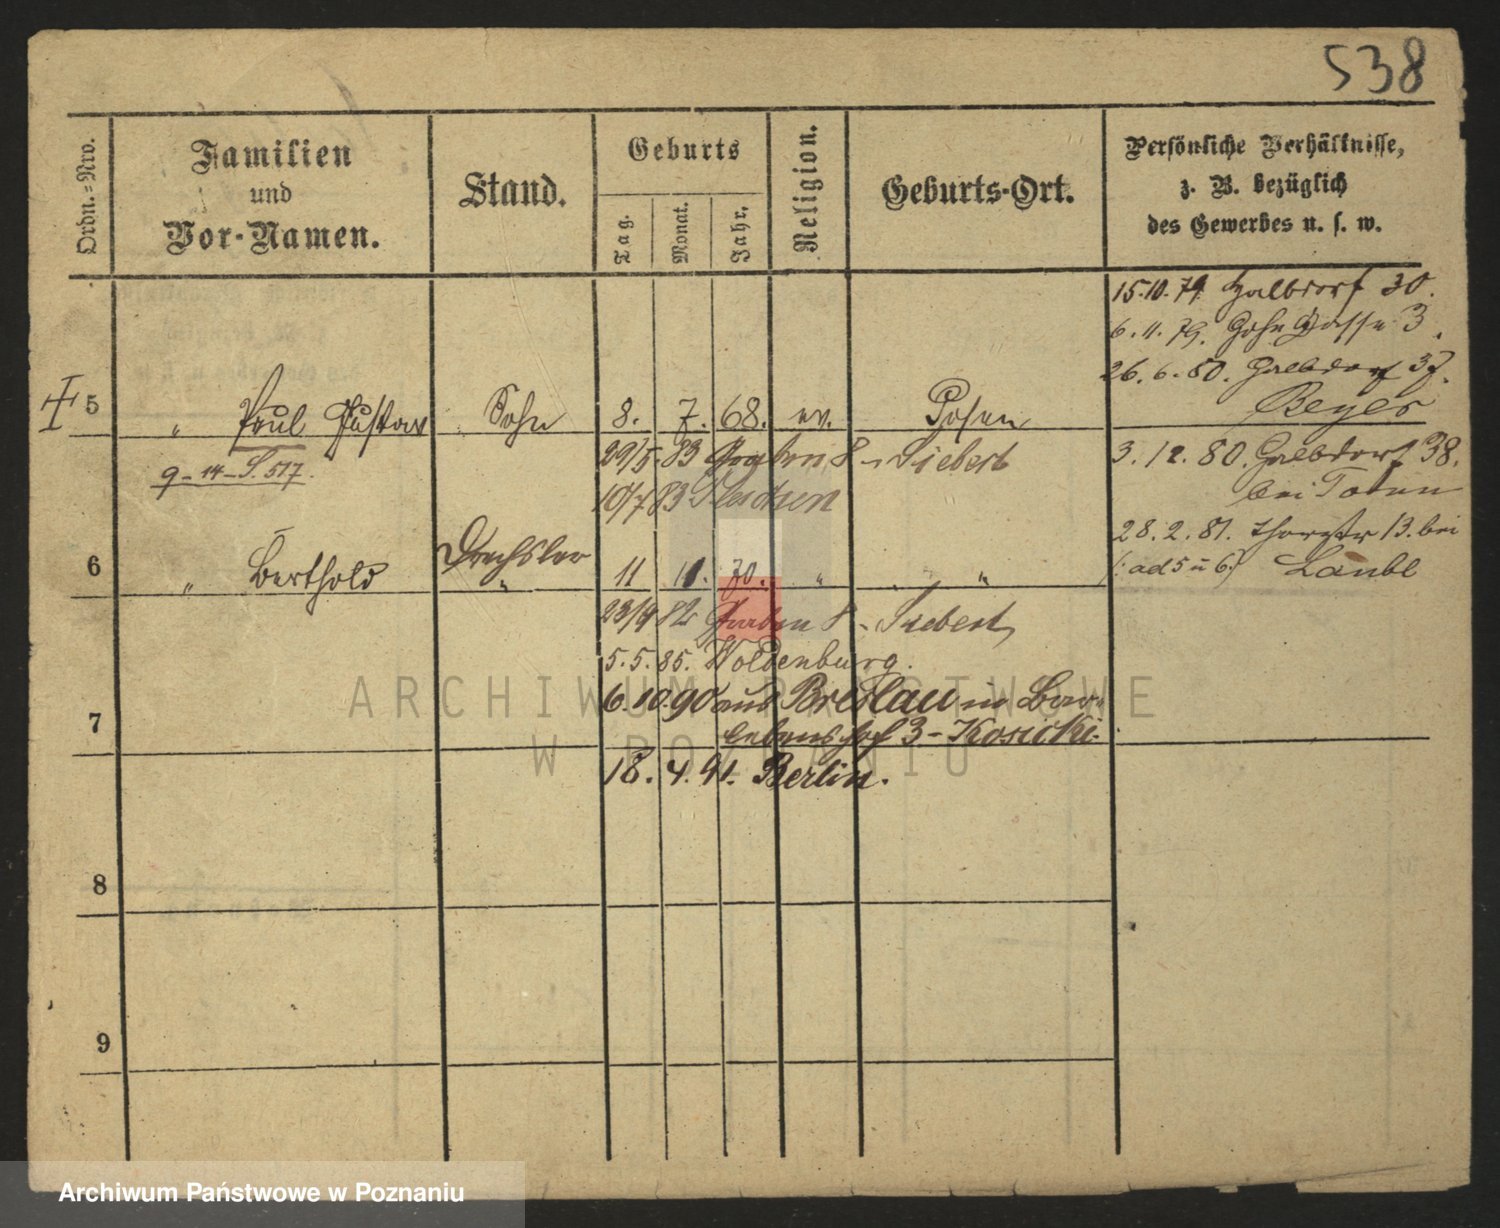 538
Ordn.=Nro.
Familien
und
Vor-Namen.
Stand.
Geburts
Tag.
Monat.
Jahr.
Religion.
Geburts-Ort.
Persönliche Verhältnisse,
z. B. bezüglich
des Gewerbes u. s. w.
15.10.79 Halbdorf 30.
6.11.79. Hohe Gasse 3.
26.6.80. Halbdorf 37.
Beyer
5 " Paul Gustav Sohn 8. 7. 68. ev. Posen
9-14-S. 517.
29/5 83 Graben 8 - Siebert
10/7 83
3.12.80. Halbdorf 38.
bei
28.2.81. 13. bei
(: ad 5 u 6.)
6 " Berthold Drechsler " 11 11. 70. " "
23/4 82 Graben 8 - Siebert
5.5.85. Woldenburg.
6.10.90 aus Breslau in
3 - Kosicki.
7
18.4.91. Berlin.
8
9
ARCHIWUM PAŃSTWOWE
W POZNANIU
Archiwum Państwowe w Poznaniu